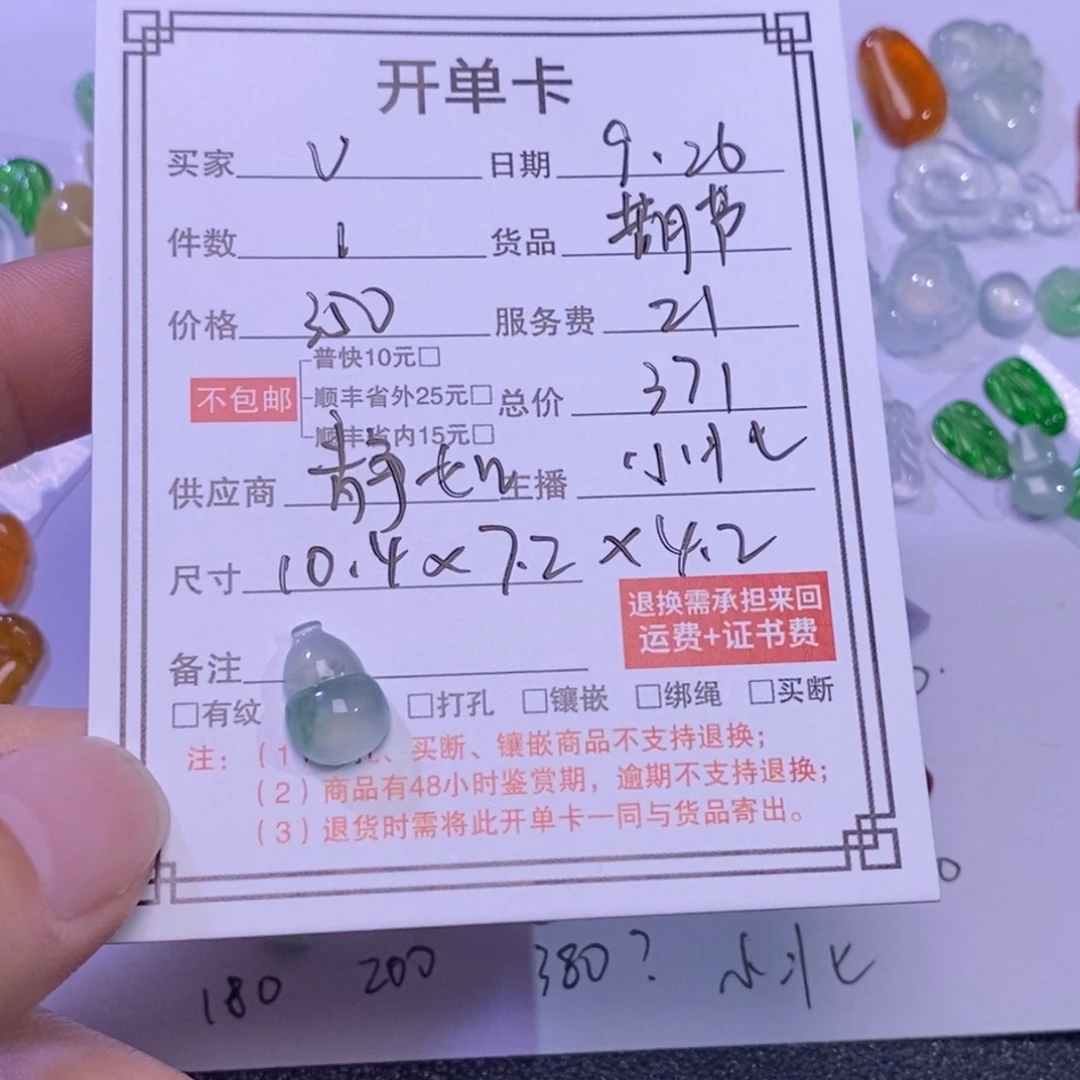 开单卡
买家 V 日期 9.26
件数 1 货品
价格 350 服务费 21
普快10元□
不包邮 顺丰省外25元□ 总价 371
顺丰省内15元□
供应商 静 主播 小北
尺寸 10.4×7.2×4.2
退换需承担来回
运费+证书费
备注
□有纹 □打孔 □镶嵌 □绑绳 □买断
注：（1 、买断、镶嵌商品不支持退换；
（2）商品有48小时鉴赏期，逾期不支持退换；
（3）退货时需将此开单卡一同与货品寄出。
180 200 380？ 小北